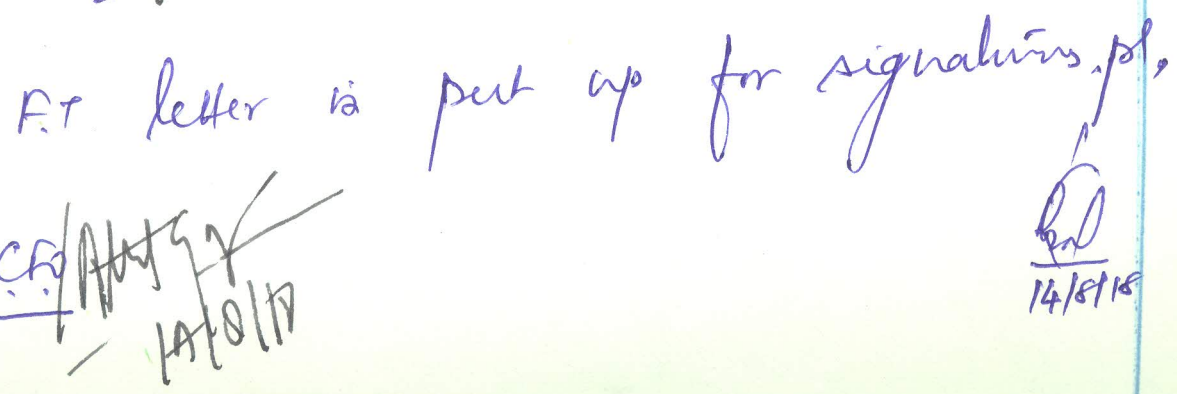 F.T letter is put up for signatures.pl,
14/8/18
C.F.O
14/8/18